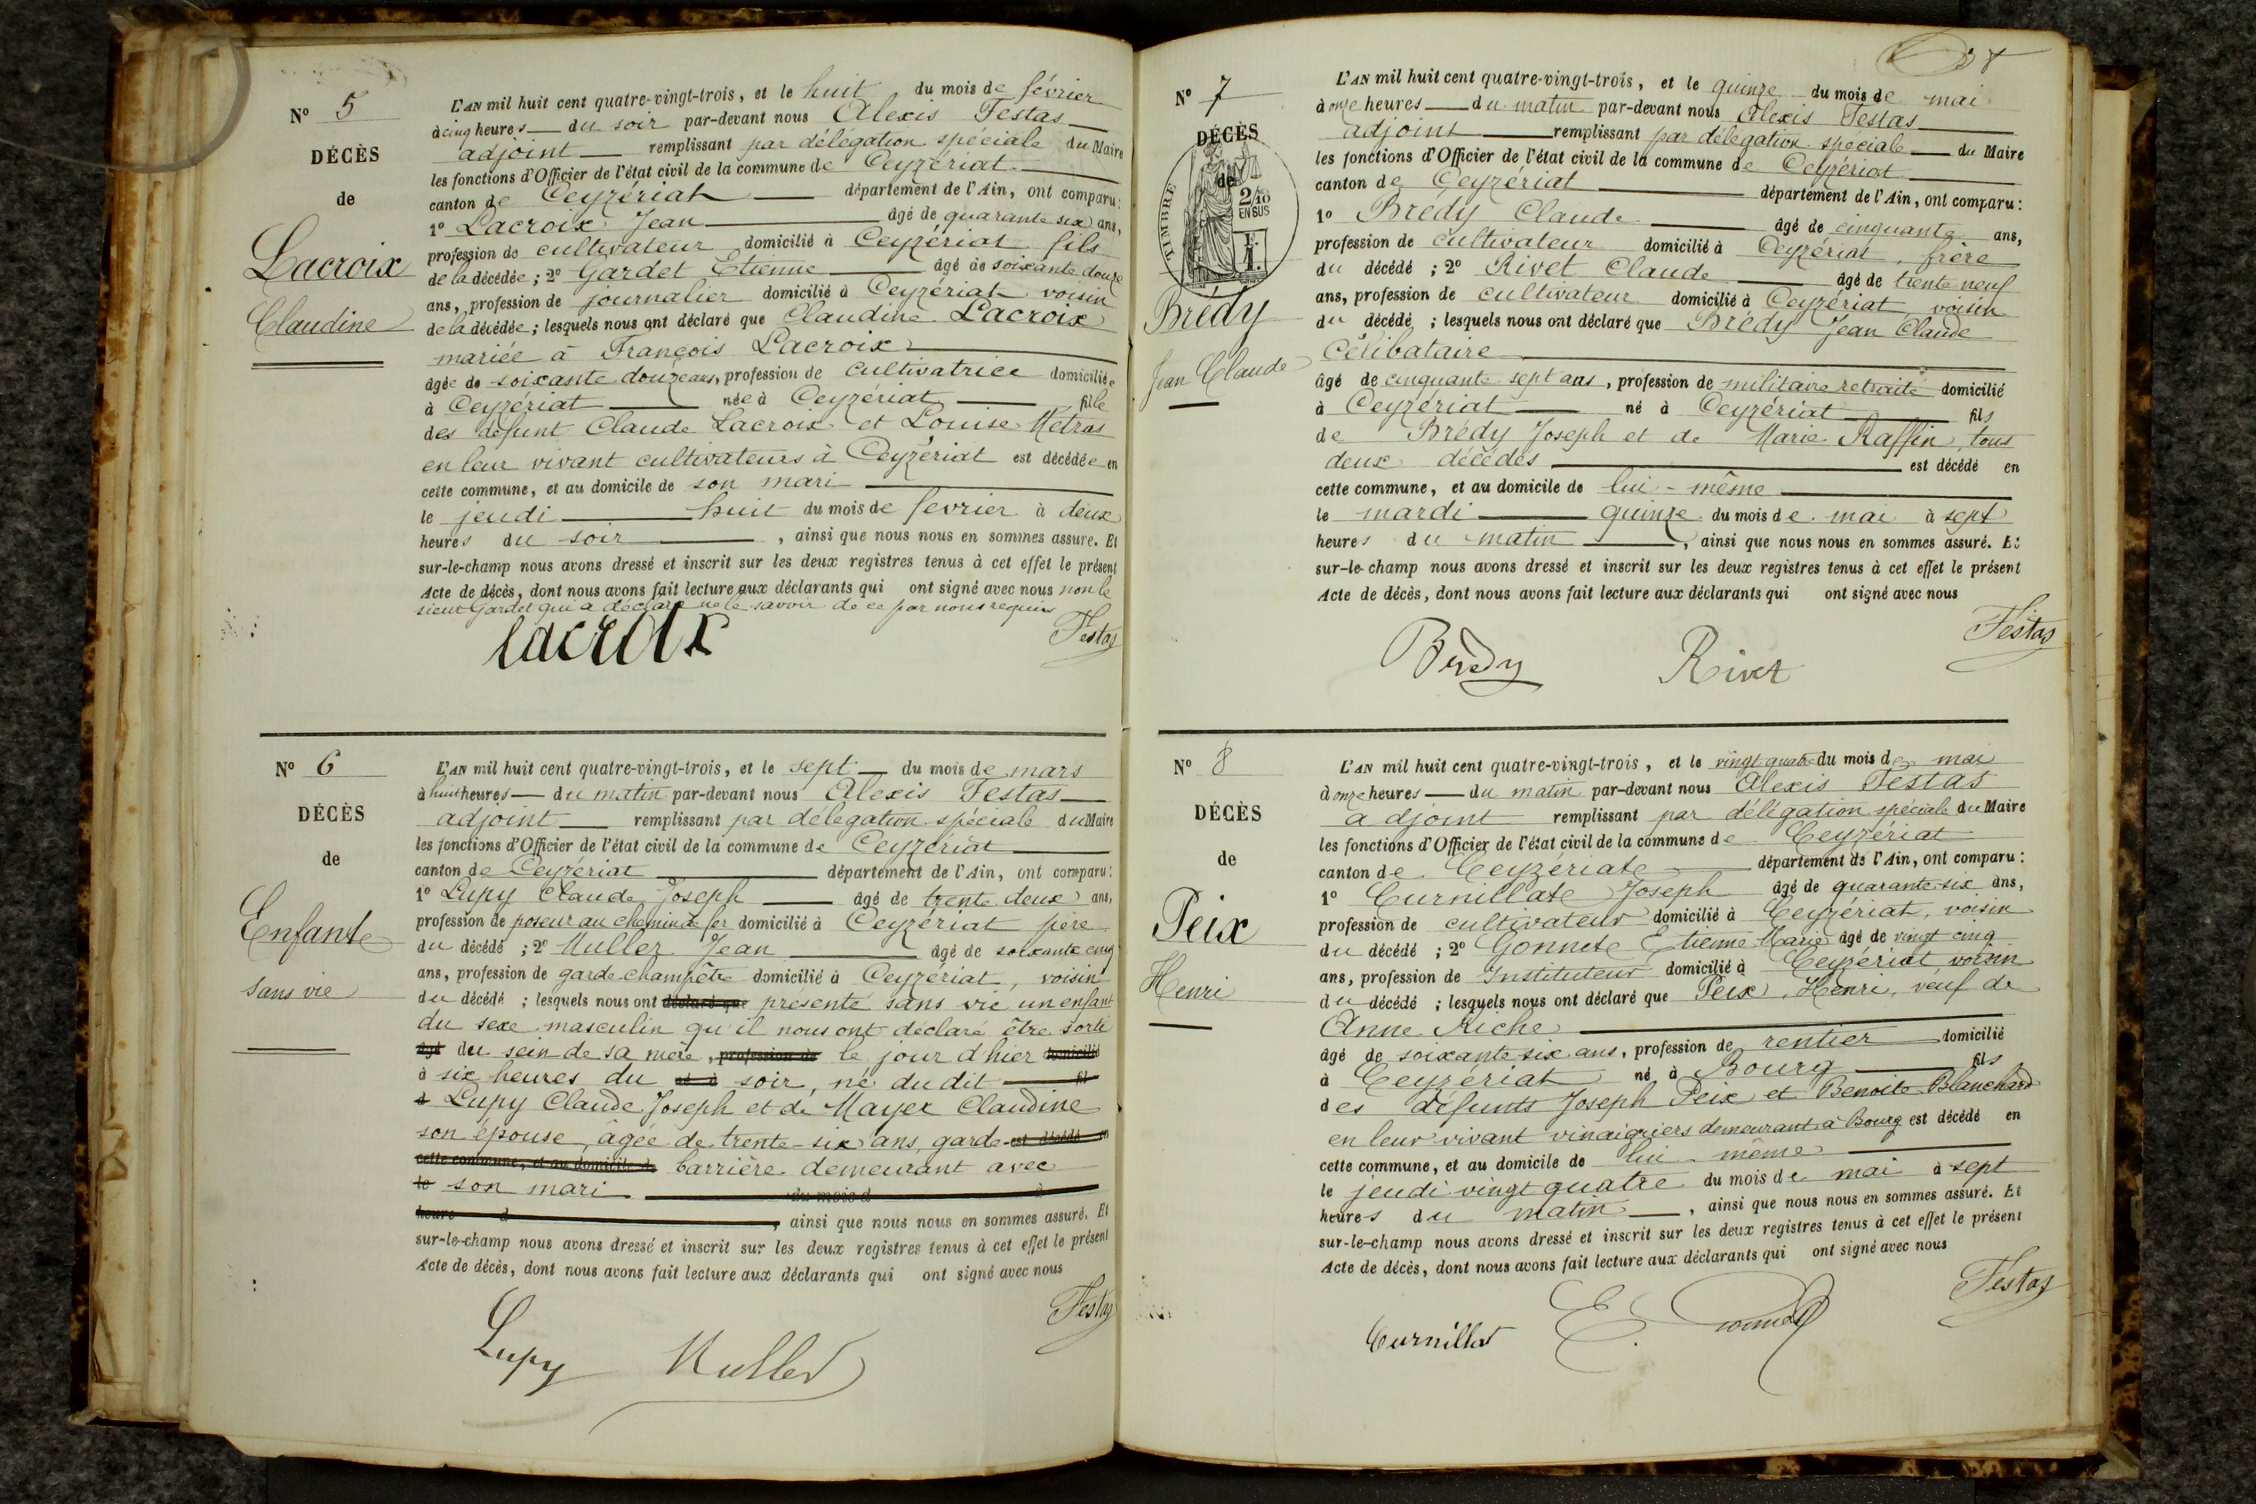 N° 5
DÉCÈS
de
Lacroix
Claudine
L'AN mil huit cent quatre-vingt-trois, et le huit du mois de février
à cinq heures du soir par-devant nous Alexis Festas
adjoint remplissant par délégation spéciale du Maire
les fonctions d'Officier de l'état civil de la commune de Ceyzériat
canton de Ceyzériat département de l'Ain, ont comparu:
1° Lacroix Jean âgé de quarante six ans,
profession de cultivateur domicilié à Ceyzériat fils
de la décédée; 2° Gardet Etienne âgé de soixante douze
ans, profession de journalier domicilié à Ceyzériat voisin
de la décédée; lesquels nous ont déclaré que Claudine Lacroix
mariée à François Lacroix
âgée de soixante douze ans, profession de cultivatrice domiciliée
à Ceyzériat née à Ceyzériat fille
des défunt Claude Lacroix et Louise Métras
en leur vivant cultivateurs à Ceyzériat est décédée en
cette commune, et au domicile de son mari
le jeudi huit du mois de février à deux
heures du soir, ainsi que nous nous en sommes assuré. Et
sur-le-champ nous avons dressé et inscrit sur les deux registres tenus à cet effet le présent
Acte de décès, dont nous avons fait lecture aux déclarants qui ont signé avec nous non le
sieur Gardet qui a déclaré ne le savoir de ce par nous requis
Lacroix Festas
N° 6
DÉCÈS
de
Enfant
sans vie
L'AN mil huit cent quatre-vingt-trois, et le sept du mois de mars
à huit heures du matin par-devant nous Alexis Festas
adjoint remplissant par délégation spéciale du Maire
les fonctions d'Officier de l'état civil de la commune de Ceyzériat
canton de Ceyzériat département de l'Ain, ont comparu:
1° Lupy Claude Joseph âgé de trente deux ans,
profession de poseur au chemin de fer domicilié à Ceyzériat père
du décédé; 2° Muller Jean âgé de soixante cinq
ans, profession de garde champêtre domicilié à Ceyzériat, voisin
du décédé; lesquels nous ont déclaré que présenté sans vie un enfant
du sexe masculin qu'il nous ont déclaré être sorti
âgé du sein de sa mère, profession de le jour d'hier domicilié
à six heures du né à soir, né du dit fil
d Lupy Claude Joseph et de Mayer Claudine
son épouse, âgée de trente-six ans, garde est décédé en
cette commune, et au domicile de barrière demeurant avec
le son mari du mois d à
heure d, ainsi que nous nous en sommes assuré. Et
sur-le-champ nous avons dressé et inscrit sur les deux registres tenus à cet effet le présent
Acte de décès, dont nous avons fait lecture aux déclarants qui ont signé avec nous
Lupy Muller Festas
N° 7
DÉCÈS
de
TIMBRE
2/10
EN SUS
1 F.
Brédy
Jean Claude
L'AN mil huit cent quatre-vingt-trois, et le quinze du mois de mai
à onze heures du matin par-devant nous Alexis Festas
adjoint remplissant par délégation spéciale du Maire
les fonctions d'Officier de l'état civil de la commune de Ceyzériat
canton de Ceyzériat département de l'Ain, ont comparu:
1° Brédy Claude âgé de cinquante ans,
profession de cultivateur domicilié à Ceyzériat, frère
du décédé; 2° Rivet Claude âgé de trente neuf
ans, profession de cultivateur domicilié à Ceyzériat, voisin
du décédé; lesquels nous ont déclaré que Brédy Jean Claude
Célibataire
âgé de cinquante sept ans, profession de militaire retraité domicilié
à Ceyzériat né à Ceyzériat fils
de Brédy Joseph et de Marie Raffin, tous
deux décédés est décédé en
cette commune, et au domicile de lui-même
le mardi quinze du mois de mai à sept
heures du matin, ainsi que nous nous en sommes assuré. Et
sur-le-champ nous avons dressé et inscrit sur les deux registres tenus à cet effet le présent
Acte de décès, dont nous avons fait lecture aux déclarants qui ont signé avec nous
Brédy Rivet Festas
N° 8
DÉCÈS
de
Peix
Henri
L'AN mil huit cent quatre-vingt-trois, et le vingt quatre du mois de mai
à onze heures du matin par-devant nous Alexis Festas
adjoint remplissant par délégation spéciale du Maire
les fonctions d'Officier de l'état civil de la commune de Ceyzériat
canton de Ceyzériate département de l'Ain, ont comparu:
1° Curnillate Joseph âgé de quarante six ans,
profession de cultivateur domicilié à Ceyzériat, voisin
du décédé; 2° Gonnete Etienne Marie âgé de vingt cinq
ans, profession de Instituteur domicilié à Ceyzériat voisin
du décédé; lesquels nous ont déclaré que Peix, Henri, veuf de
Anne Riche
âgé de soixante six ans, profession de rentier domicilié
à Ceyzériat né à Bourg fils
des défunts Joseph Peix et Benoite Blanchard
en leur vivant vinaigriers demeurant à Bourg est décédé en
cette commune, et au domicile de lui-même
le jeudi vingt quatre du mois de mai à sept
heures du matin, ainsi que nous nous en sommes assuré. Et
sur-le-champ nous avons dressé et inscrit sur les deux registres tenus à cet effet le présent
Acte de décès, dont nous avons fait lecture aux déclarants qui ont signé avec nous
Curnillat E. Gonnet Festas